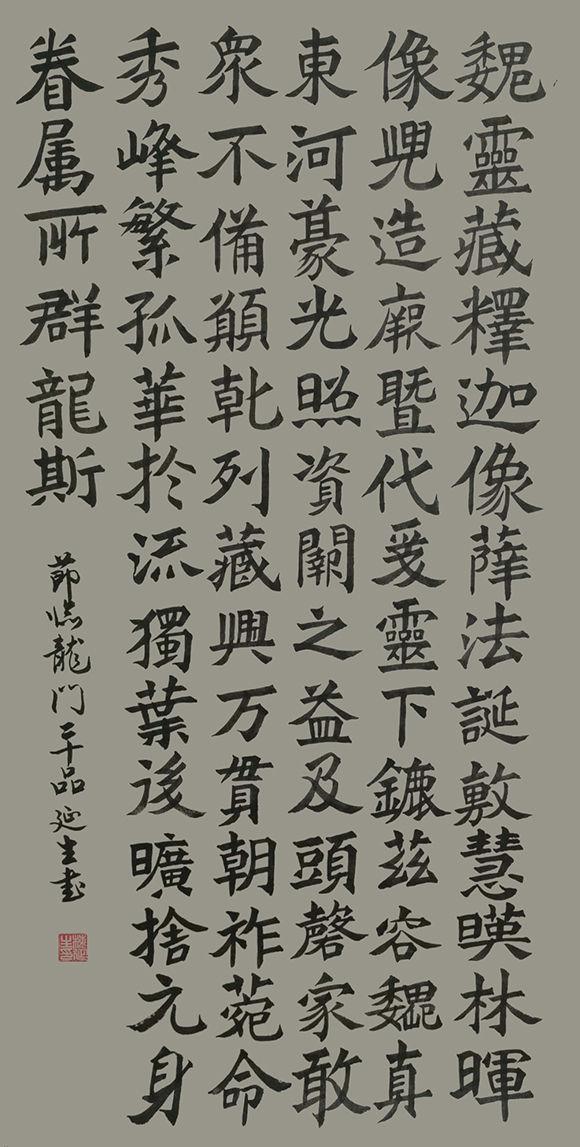 魏靈藏釋迦像薛法誕敷慧暎林暉
像兜造厥暨代爰靈下鏕茲容魏真
東河豪光照資闕之益及頭罄家敢
眾不備願乾列藏興万貫朝祚菀命
秀峰繁孤華於流獨葉後曠捨元身
眷属所群龍斯
節臨龍門二十品延生書